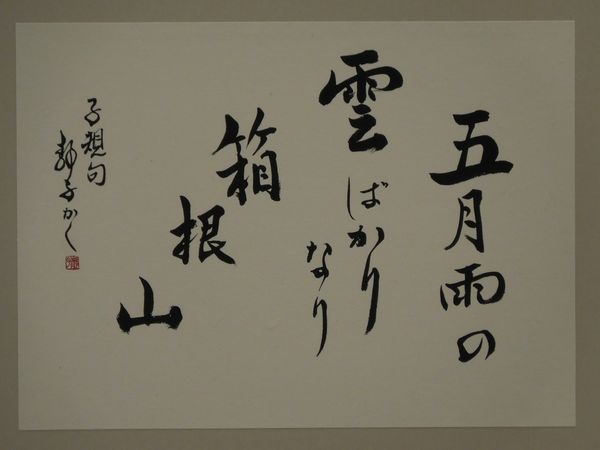 五月雨の
雲ばかり
なり
箱
根
山
子規句
静子かく